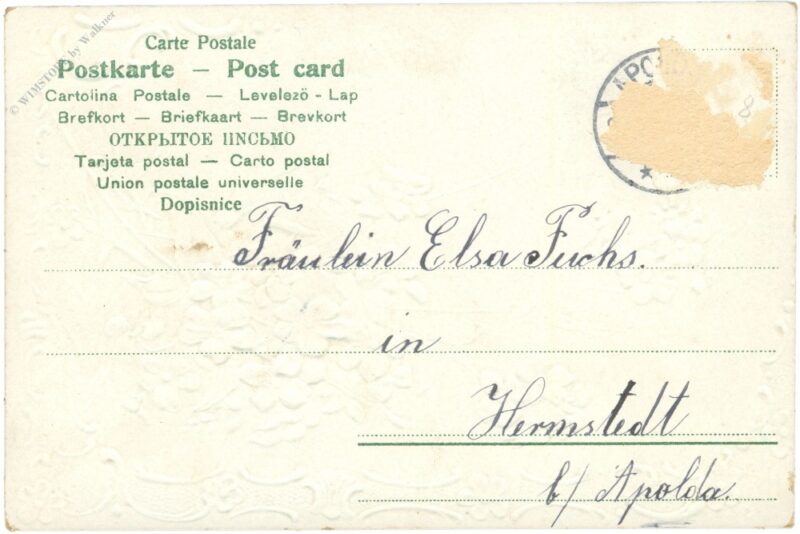 © WIMSTORE by Walkner
Carte Postale
Postkarte — Post card
Cartolina Postale — Levelezö - Lap
Brefkort — Briefkaart — Brevkort
ОТКРЫТОЕ ПИСЬМО
Tarjeta postal — Carto postal
Union postale universelle
Dopisnice
APO
8
Fräulein Elsa Fuchs.
in
Hermstedt
b/ Apolda.